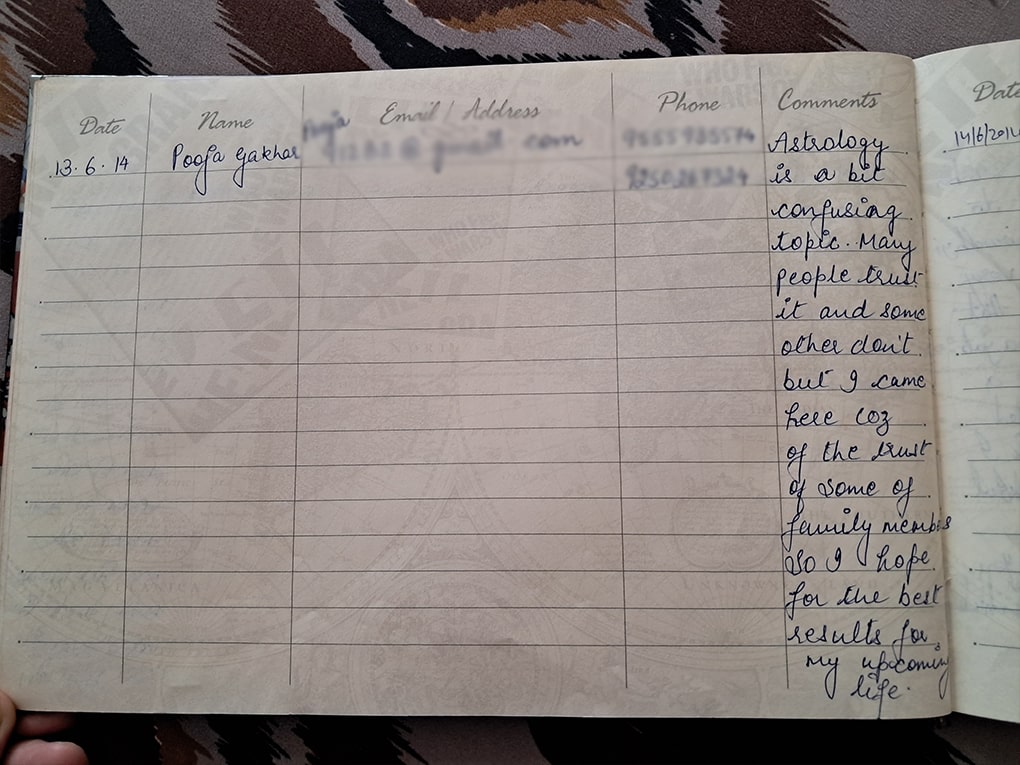 Date Name Email / Address Phone Comments Date
13.6.14 Pooja Gakhar Astrology 14/6/2014
is a bit
confusing
topic. Many
people trust
it and some
other don't
but I came
here coz
of the trust
of some of
family members
so I hope
for the best
results for
my upcoming
life.